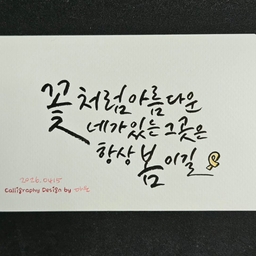 꽃처럼 아름다운
네가 있는 그곳은
항상 봄이길
2026.0415
Calligraphy Design by